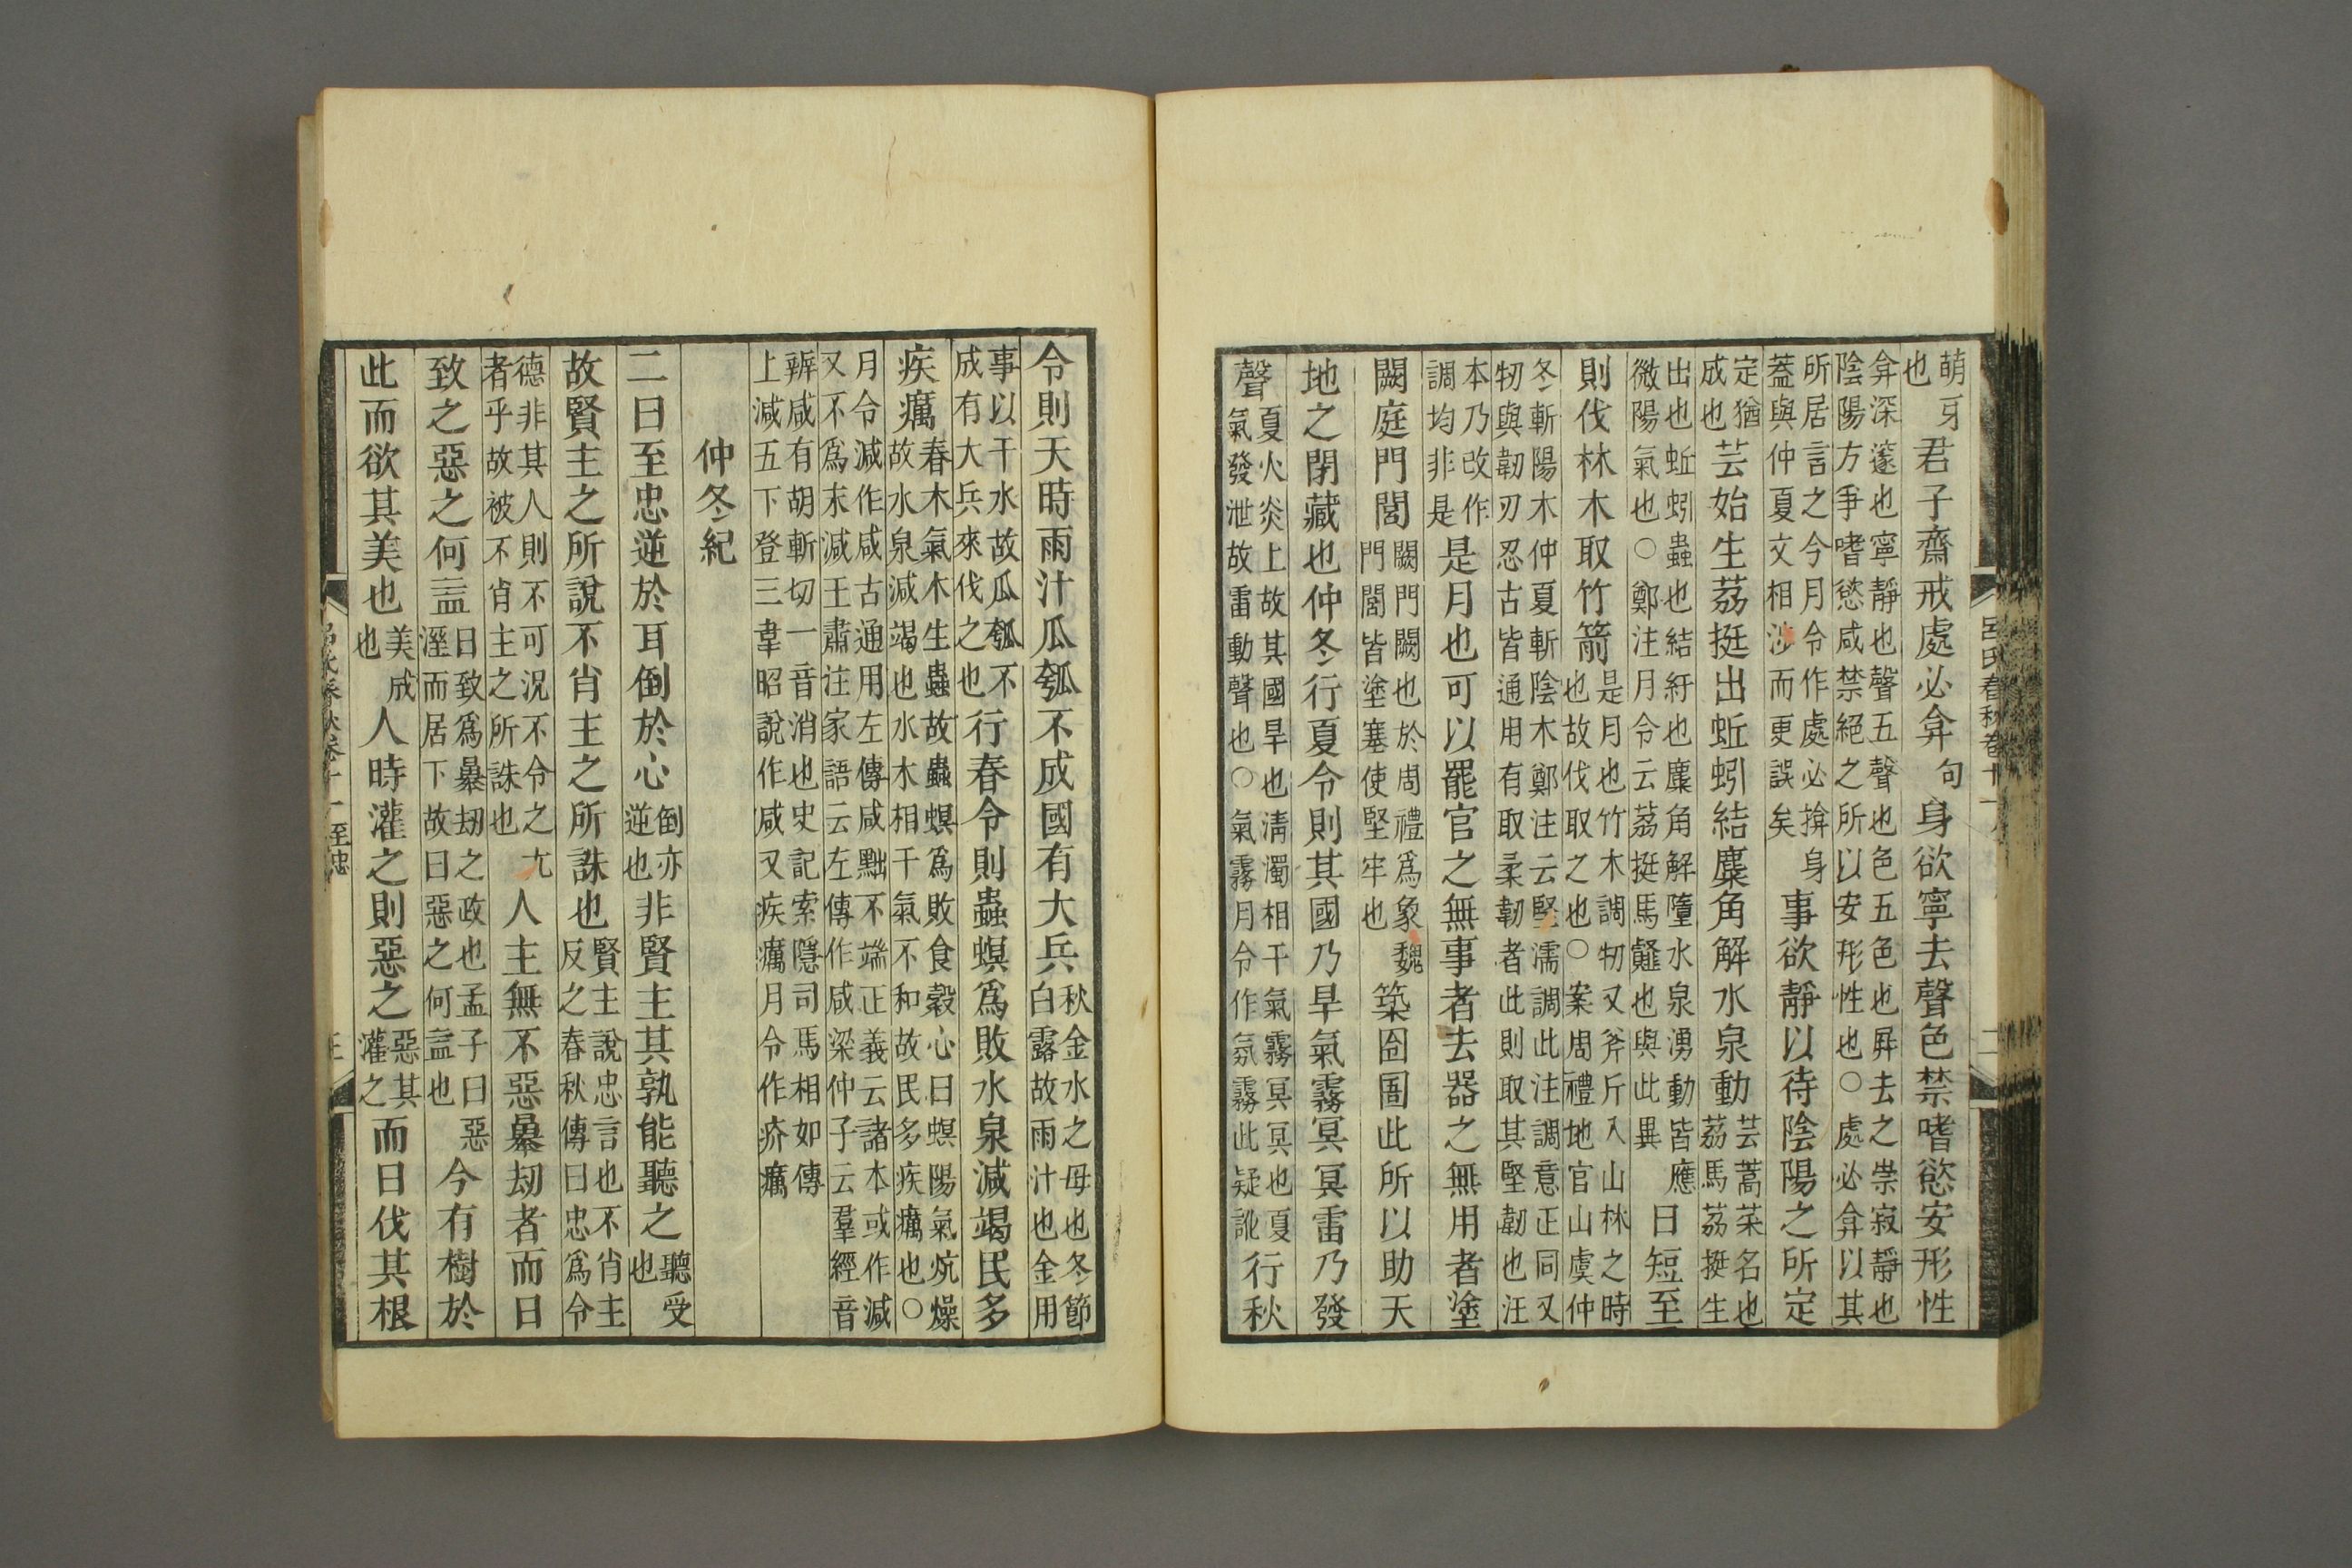 萌牙也君子齋戒處必弇句身欲寧去聲色禁嗜慾安形性
弇深邃也寧靜也聲五聲也色五色也屛去之崇寂靜也陰陽方爭嗜慾咸禁絕之所以安形性也○處必弇以其
所居言之今月令作處必揜身蓋與仲夏文相涉而更誤矣事欲靜以待陰陽之所定
定猶成也芸始生荔挺出蚯蚓結麋角解水泉動芸蒿菜名也荔馬荔挺生
出也蚯蚓蟲也結紆也麋角解墮水泉湧動皆應微陽氣也○鄭注月令云荔挺馬䪥也與此異日短至
則伐林木取竹箭是月也竹木調牣又斧斤入山林之時也故伐取之也○案周禮地官山虞仲
冬斬陽木仲夏斬陰木鄭注云堅濡調此注調意正同又牣與韌刃忍古皆通用有取柔韌者此則取其堅韌也汪
本乃攺作調均非是是月也可以罷官之無事者去器之無用者塗
闕庭門閭闕門闕也於周禮爲象魏門閭皆塗塞使堅牢也築囹圄此所以助天
地之閉藏也仲冬行夏令則其國乃旱氣霧冥冥雷乃發
聲夏火炎上故其國旱也淸濁相干氣霧冥冥也夏氣發泄故雷動聲也○氣霧月令作氛霧此疑訛行秋
呂氏春秋卷十一
二
令則天時雨汁瓜瓠不成國有大兵秋金水之母也冬節白露故雨汁也金用
事以干水故瓜瓠不成有大兵來伐之也行春令則蟲螟爲敗水泉減竭民多
疾癘春木氣木生蟲故蟲螟爲敗食穀心曰螟陽氣炕燥故水泉減竭也水木相干氣不和故民多疾癘也○
月令減作咸古通用左傳咸黜不端正義云諸本或作減又不爲末減王肅注家語云左傳作咸梁仲子云羣經音
辨咸有胡斬切一音消也史記索隱司馬相如傳上減五下登三韋昭說作咸又疾癘月令作疥癘
仲冬紀
二曰至忠逆於耳倒於心倒亦逆也非賢主其孰能聽之聽受也
故賢主之所說不肖主之所誅也賢主說忠言也不肖主反之春秋傳曰忠爲令
德非其人則不可況不令之尢者乎故被不肖主之所誅也人主無不惡暴劫者而日
致之惡之何益日致爲暴劫之政也孟子曰惡溼而居下故曰惡之何益也今有樹於
此而欲其美也美成也人時灌之則惡之惡其灌之而日伐其根
呂氏春秋卷十一 至忠